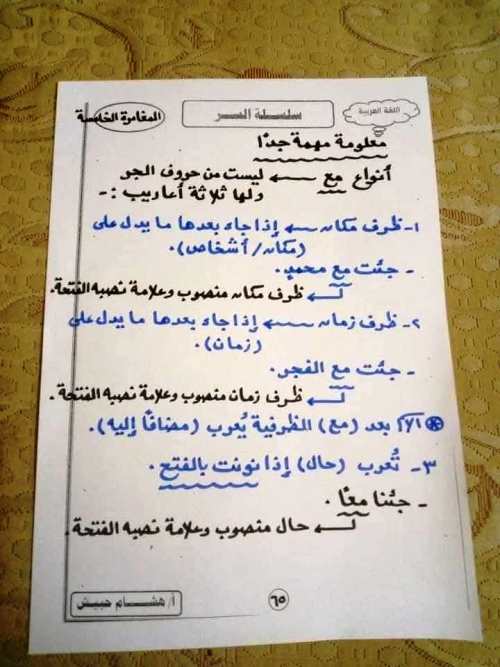 اللغة العربية
سلسلة السر
المغامرة الخامسة
معلومة مهمة جدًا
أنواع مع ← ليست من حروف الجر
ولها ثلاثة أعاريب :-
١- ظرف مكان ← إذا جاء بعدها ما يدل على
(مكان/أشخاص).
- جئت مع محمدٍ.
ظرف مكان منصوب وعلامة نصبه الفتحة.
٢- ظرف زمان ← إذا جاء بعدها ما يدل على
(زمان).
- جئت مع الفجر.
ظرف زمان منصوب وعلامة نصبه الفتحة.
الاسم بعد (مع) الظرفية يُعرب (مضافًا إليه).
٣- تُعرب (حال) إذا نونت بالفتح.
- جئنا معًا.
حال منصوب وعلامة نصبه الفتحة.
٦٥
أ/ هشام حبيش